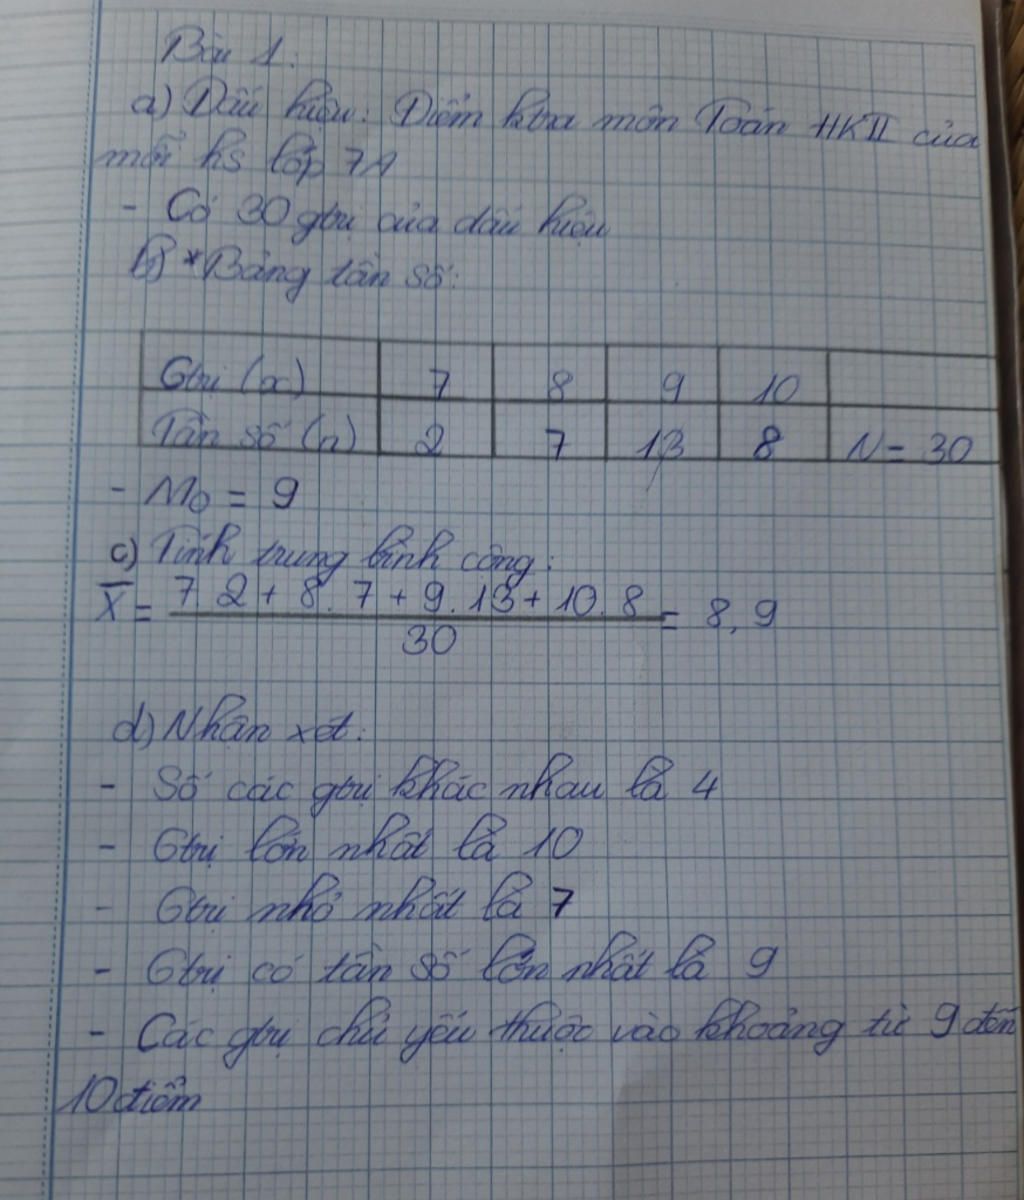 Bài 1:
a) Dấu hiệu: Điểm ktra môn Toán HKII của
mỗi hs lớp 7A
- Có 30 gtrị của dấu hiệu
b) *Bảng tần số:
Gtrị (x) 7 8 9 10
Tần số (n) 2 7 13 8 N = 30
- M₀ = 9
c) Tính trung bình cộng:
X̄ = (7.2 + 8.7 + 9.13 + 10.8)/30 = 8,9
d) Nhận xét:
- Số các gtrị khác nhau là 4
- Gtrị lớn nhất là 10
- Gtrị nhỏ nhất là 7
- Gtrị có tần số lớn nhất là 9
- Các gtrị chủ yếu thuộc vào khoảng từ 9 đến
10 điểm